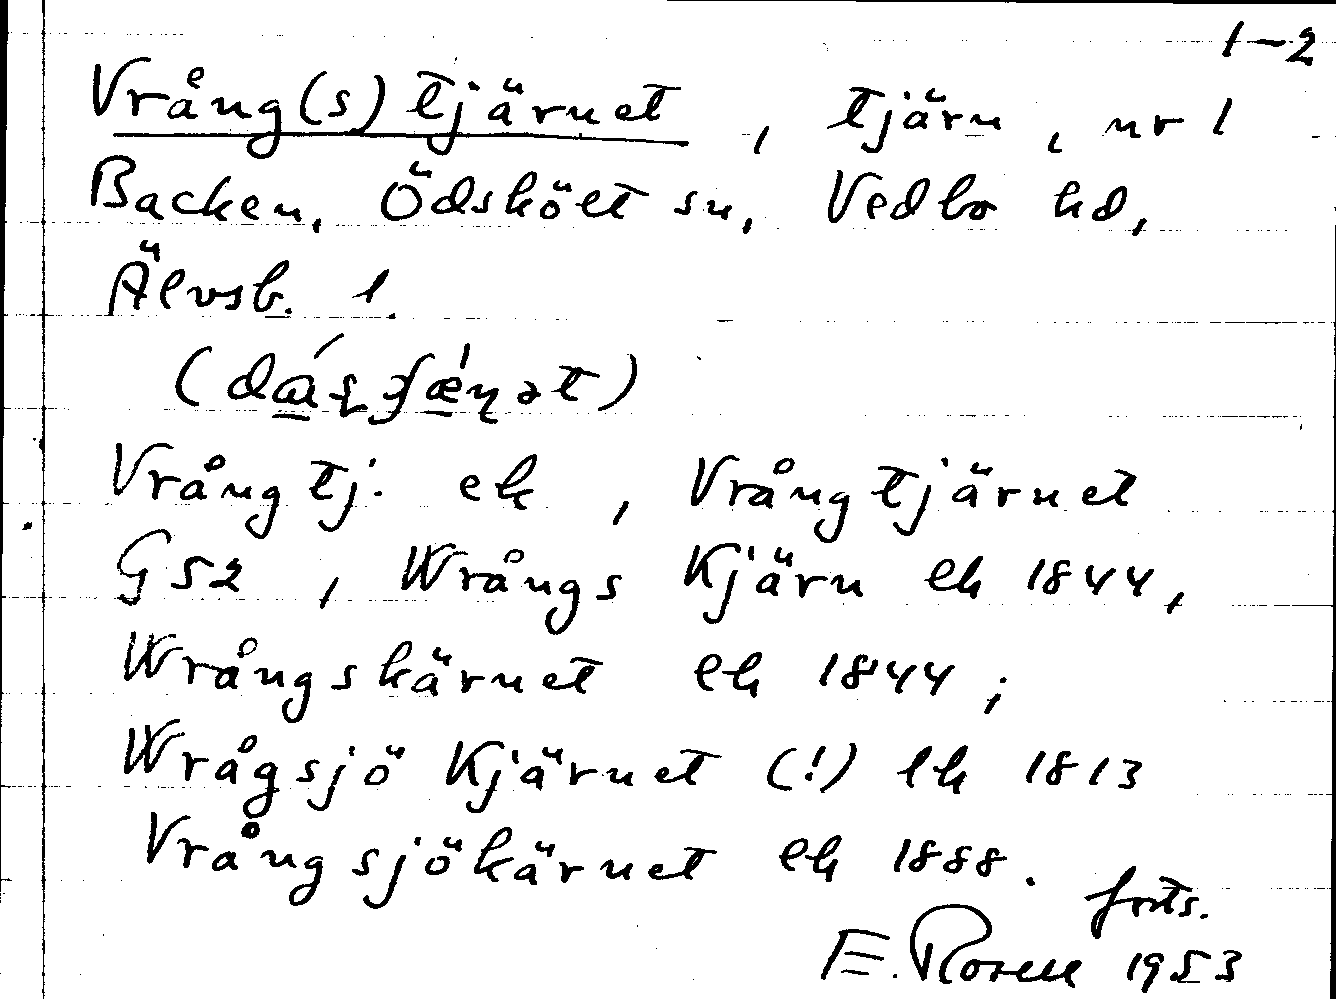 1-2
Vrång(s)tjärnet, tjärn, nr 1
Backen, Ödskölt sn, Vedbo hd,
Älvsb. l.
Vrångtj. ek, Vrångtjärnet
GS2, Wrångs Kjärn ek 1844,
Wrångskärnet ek 1844;
Wrågsjö Kjärnet (!) lk 1813
Vrångsjökärnet ek 1888.
forts.
E. Rosell 1953